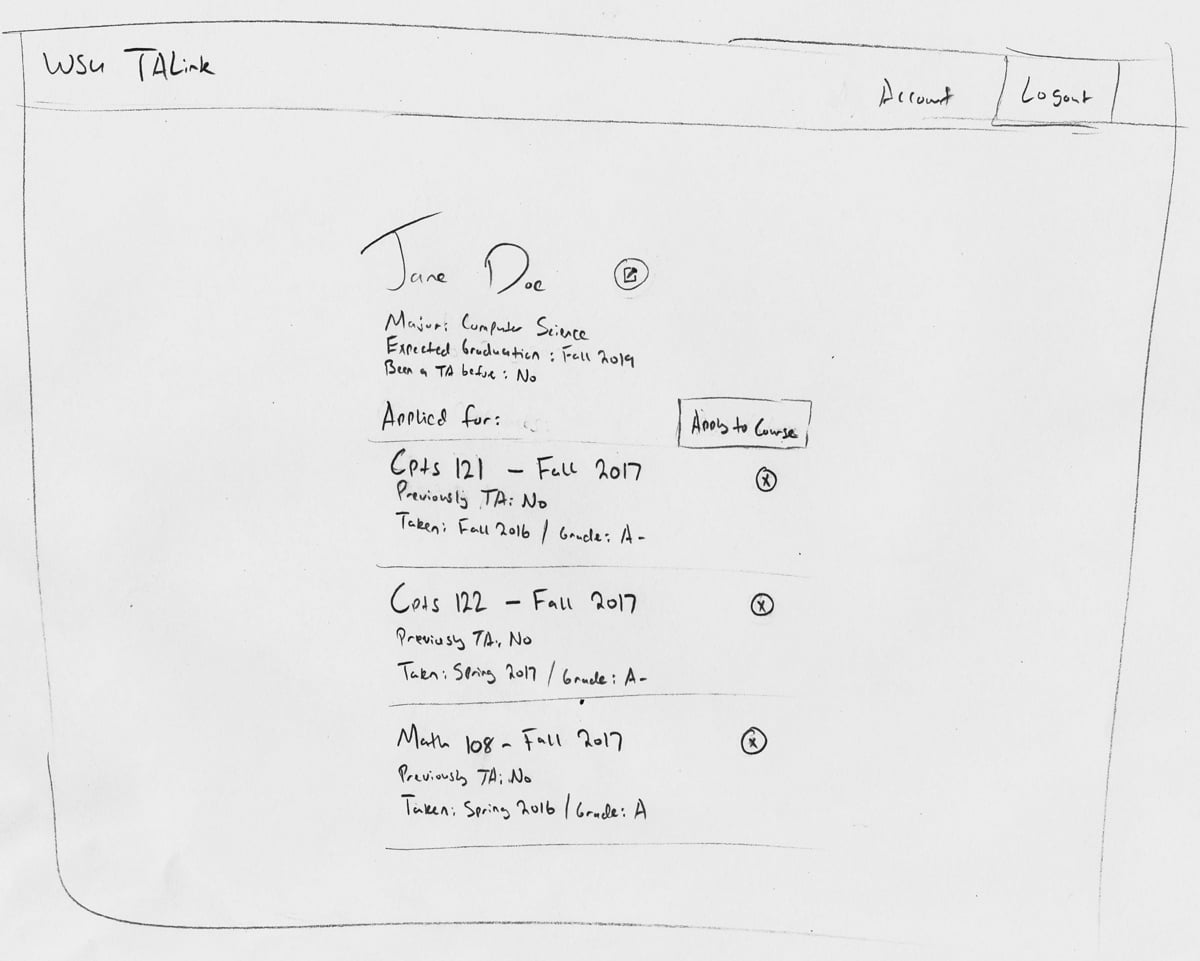 WSU TALink
Account
Logout
Jane Doe
Major: Computer Science
Expected Graduation : Fall 2019
Been a TA before : No
Applied for:
Apply to Course
Cpts 121 - Fall 2017
Previously TA: No
Taken: Fall 2016 / Grade: A-
Cpts 122 - Fall 2017
Previously TA: No
Taken: Spring 2017 / Grade: A-
Math 108 - Fall 2017
Previously TA: No
Taken: Spring 2016 / Grade: A